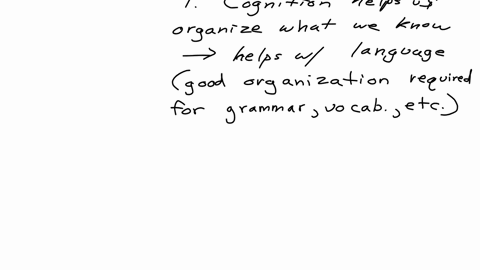 1. Cognition helps us
organize what we know
→ helps w/ language
(good organization required
for grammar, vocab., etc.)